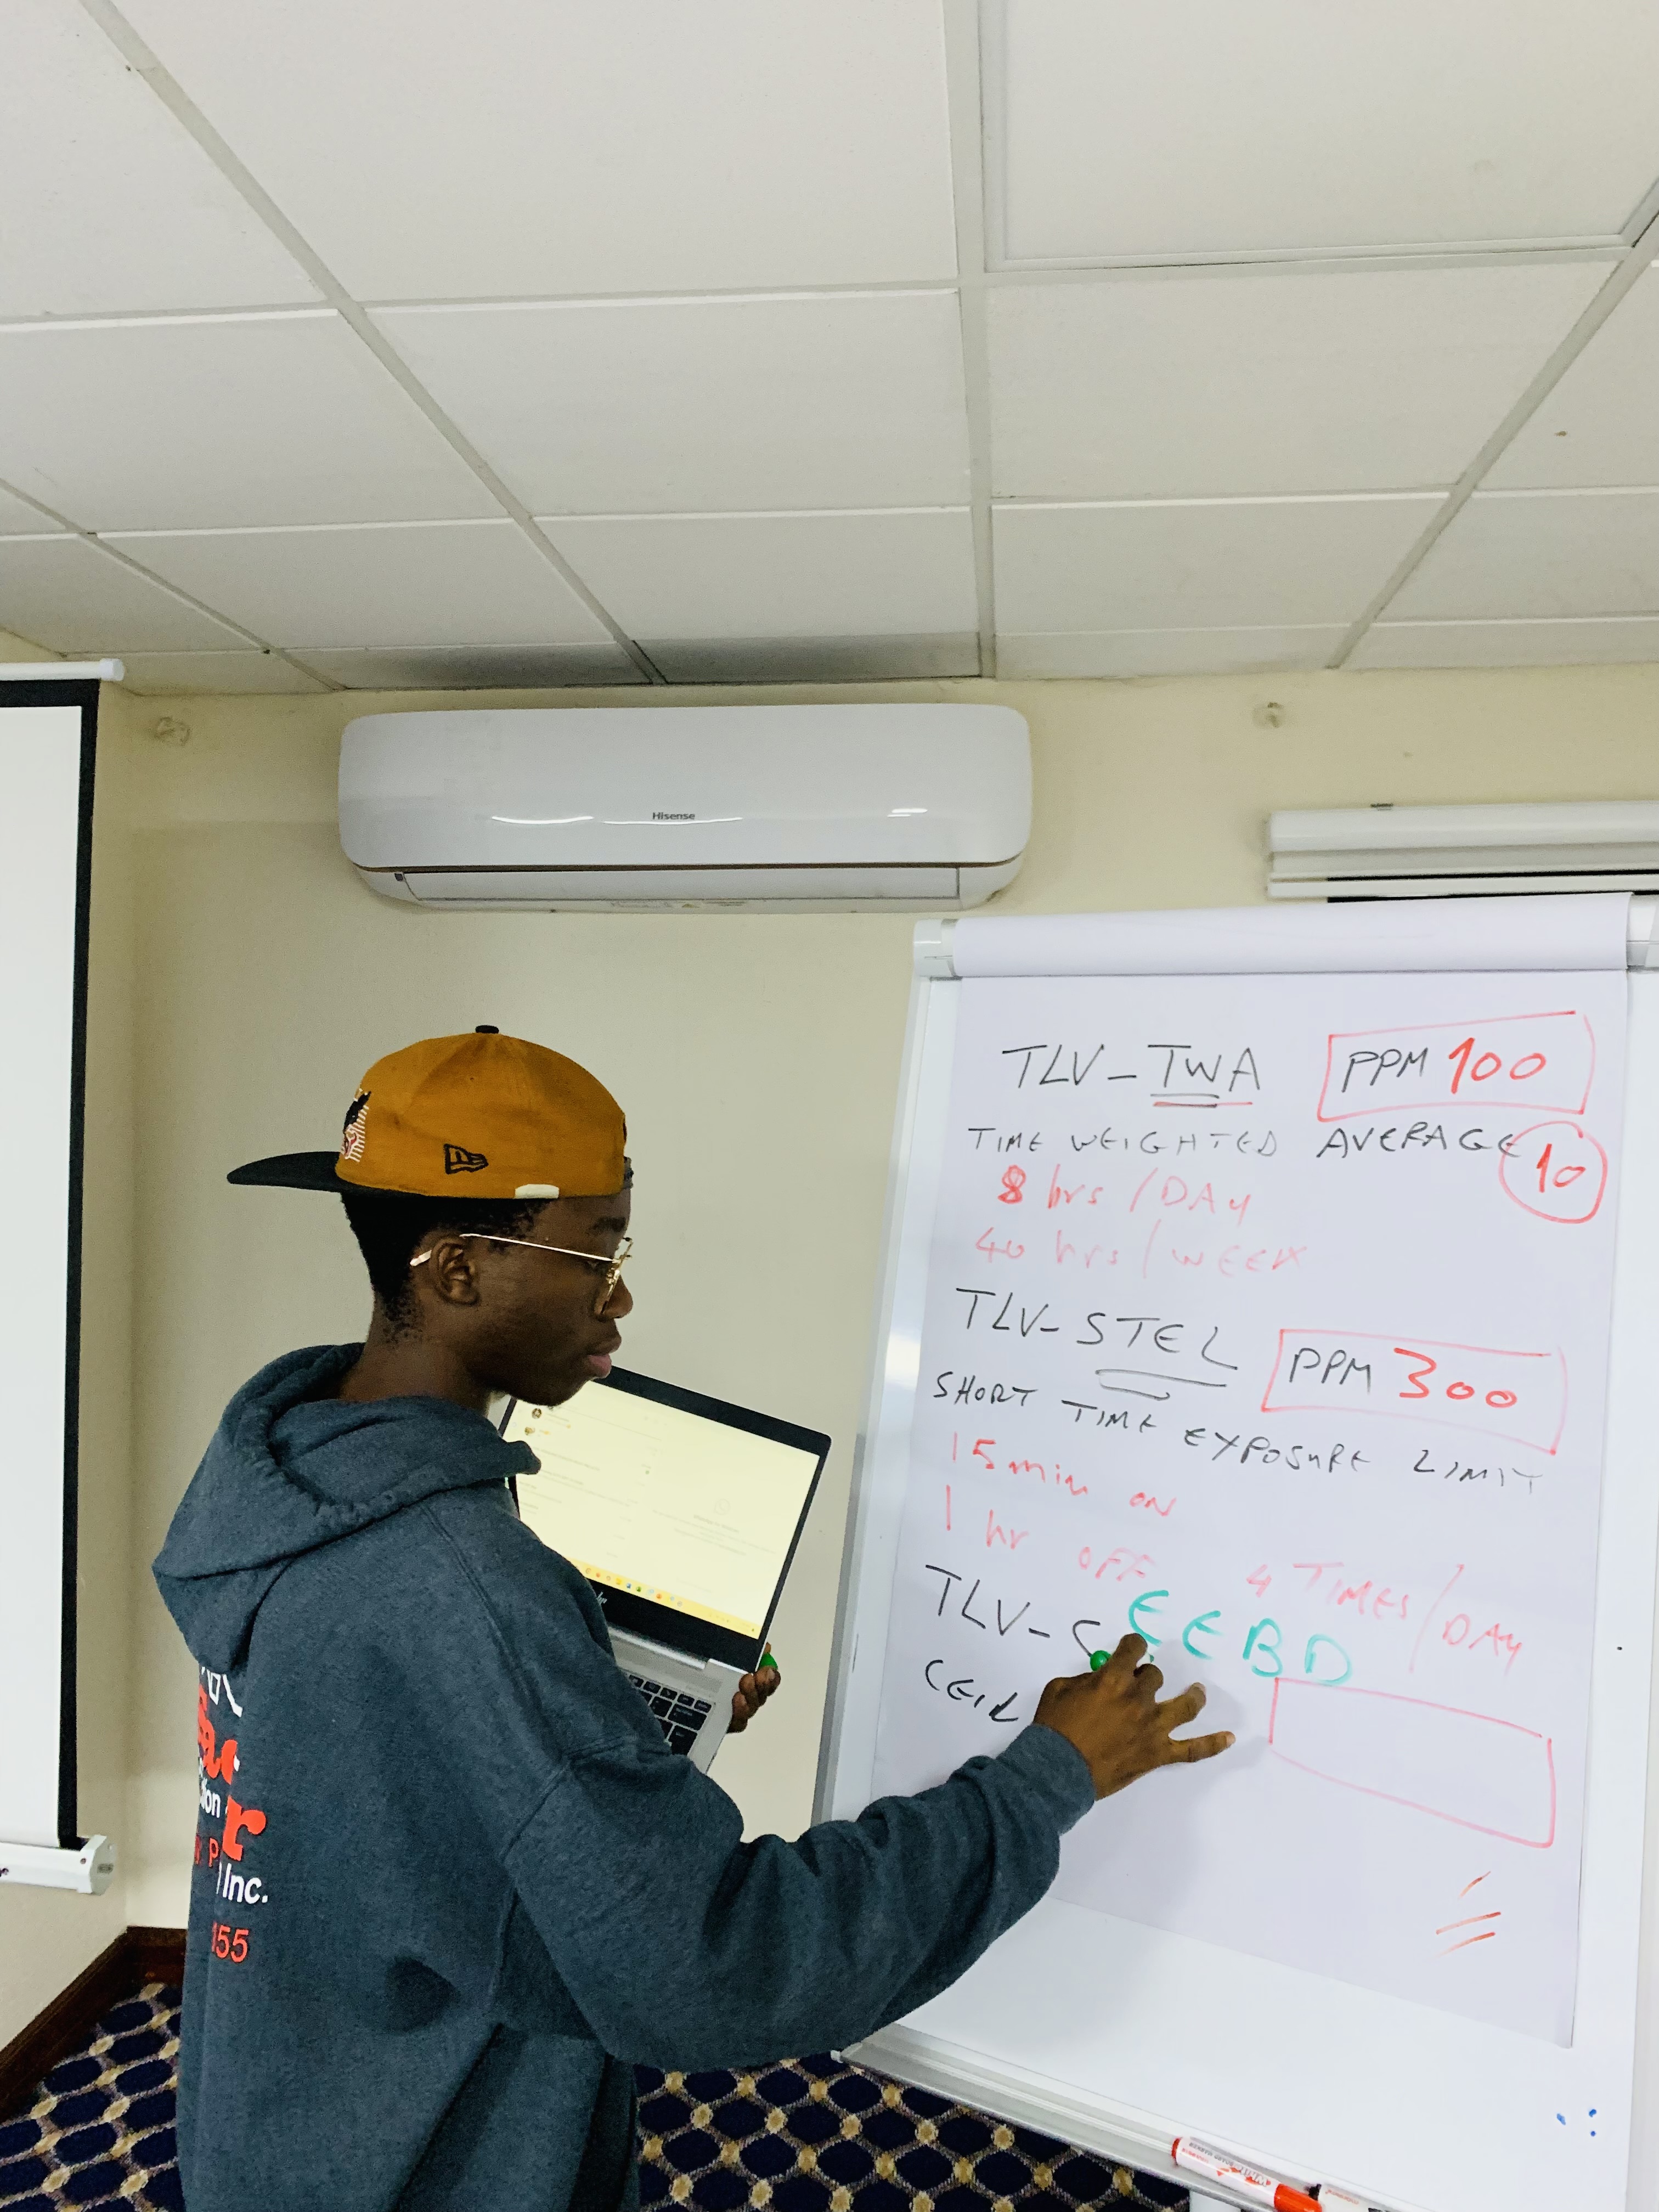 Hisense
TLV-TWA PPM 100
TIME WEIGHTED AVERAGE 10
8 hrs/DAY
40 hrs/WEEK
TLV-STEL PPM 300
SHORT TIME EXPOSURE LIMIT
15 min ON
1 hr OFF 4 TIMES/DAY
TLV-C EEBD
CEIL
Inc.